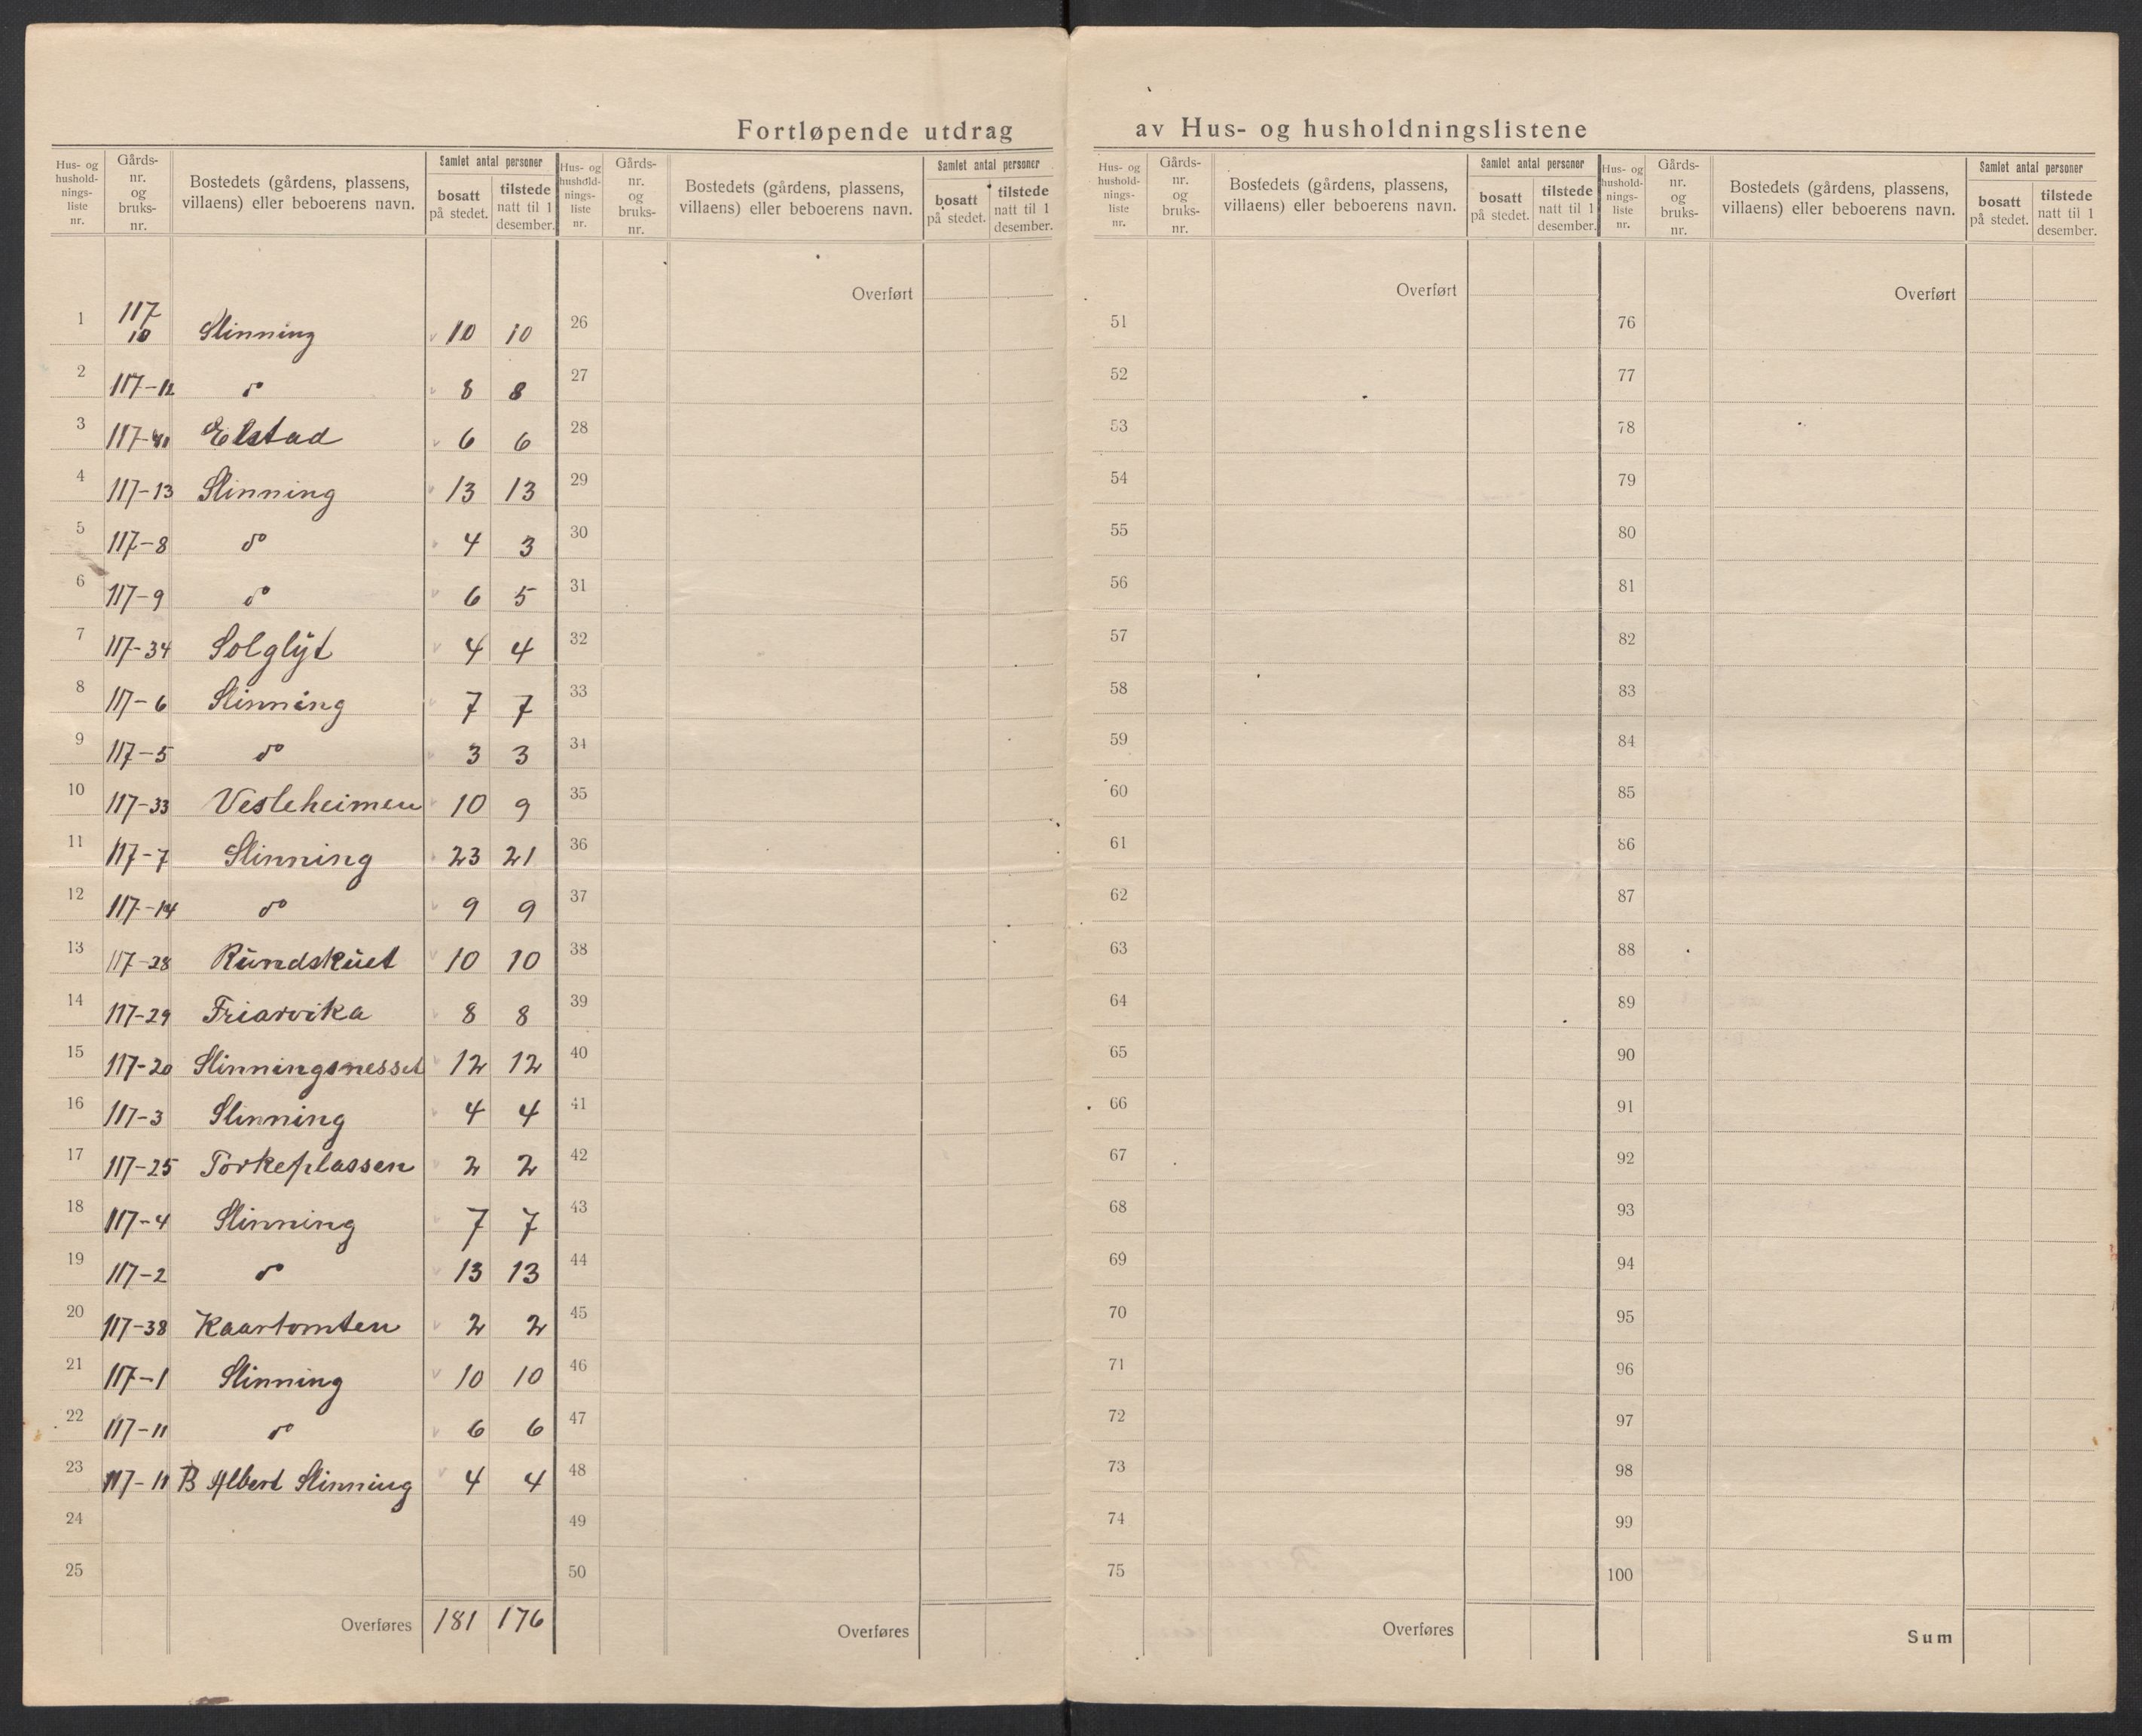 Fortløpende utdrag av Hus- og husholdningslistene
Hus- og hushold-nings-liste nr. | Gårds-nr. og bruks-nr. | Bostedets (gårdens, plassens, villaens) eller beboerens navn. | Samlet antal personer | bosatt på stedet. | tilstede natt til 1 desember.
1 117 10 Slinning 10 10
2 117-12 do 8 8
3 117-41 Elstad 6 6
4 117-13 Slinning 13 13
5 117-8 do 4 3
6 117-9 do 6 5
7 117-34 Solglyt 4 4
8 117-6 Slinning 7 7
9 117-5 do 3 3
10 117-33 Vesleheimen 10 9
11 117-7 Slinning 23 21
12 117-14 do 9 9
13 117-28 Rundskuet 10 10
14 117-29 Friarvika 8 8
15 117-20 Slinningsnesset 12 12
16 117-3 Slinning 4 4
17 117-25 Torkeplassen 2 2
18 117-4 Slinning 7 7
19 117-2 do 13 13
20 117-38 Kaartomten 2 2
21 117-1 Slinning 10 10
22 117-11 do 6 6
23 117-11 B Albert Slinning 4 4
24
25
Overføres 181 176
Hus- og hushold-nings-liste nr. | Gårds-nr. og bruks-nr. | Bostedets (gårdens, plassens, villaens) eller beboerens navn. | Samlet antal personer | bosatt på stedet. | tilstede natt til 1 desember.
Overført
26
27
28
29
30
31
32
33
34
35
36
37
38
39
40
41
42
43
44
45
46
47
48
49
50
Overføres
Hus- og hushold-nings-liste nr. | Gårds-nr. og bruks-nr. | Bostedets (gårdens, plassens, villaens) eller beboerens navn. | Samlet antal personer | bosatt på stedet. | tilstede natt til 1 desember.
Overført
51
52
53
54
55
56
57
58
59
60
61
62
63
64
65
66
67
68
69
70
71
72
73
74
75
Overføres
Hus- og hushold-nings-liste nr. | Gårds-nr. og bruks-nr. | Bostedets (gårdens, plassens, villaens) eller beboerens navn. | Samlet antal personer | bosatt på stedet. | tilstede natt til 1 desember.
Overført
76
77
78
79
80
81
82
83
84
85
86
87
88
89
90
91
92
93
94
95
96
97
98
99
100
Sum